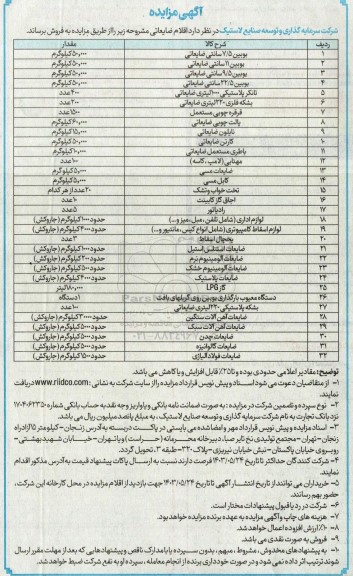 آگهی مزایده
شرکت سرمایه گذاری و توسعه صنایع لاستیک در نظر دارد اقلام ضایعاتی مشروحه زیر را از طریق مزایده به فروش برساند.
ردیف شرح کالا مقدار
۱ بوبین ۷/۵ سانتی ضایعاتی ۵۰,۰۰۰ کیلوگرم
۲ بوبین ۱۱ سانتی ضایعاتی ۵۰,۰۰۰ کیلوگرم
۳ بوبین ۹/۵ سانتی ضایعاتی ۵۰,۰۰۰ کیلوگرم
۴ بوبین ۲۲/۵ سانتی ضایعاتی ۵۰,۰۰۰ کیلوگرم
۵ تانکر پلاستیکی ۱۰۰۰ لیتری ضایعاتی ۴۰۰ عدد
۶ بشکه فلزی ۲۲۰ لیتری ضایعاتی ۲۰۰ عدد
۷ قرقره چوبی مستعمل ۱۵۰۰ عدد
۸ پالت چوبی ضایعاتی ۶۰,۰۰۰ کیلوگرم
۹ نایلون ضایعاتی ۱۵,۰۰۰ کیلوگرم
۱۰ کارتن ضایعاتی ۵۰,۰۰۰ کیلوگرم
۱۱ باطری مستعمل ضایعاتی ۱۰,۰۰۰ کیلوگرم
۱۲ مهتابی (لامپ، کاسه) ۱۰۰ عدد
۱۳ ضایعات مسی ۵,۰۰۰ کیلوگرم
۱۴ کابل مسی ۵,۰۰۰ کیلوگرم
۱۵ تخت خواب و تشک ۲۰ عدد از هر کدام
۱۶ اجاق گاز کابینت ۱۰ عدد
۱۷ رادیاتور ۵ عدد
۱۸ لوازم اداری (شامل تلفن، مبل، میز و...) حدود ۱۰۰۰ کیلوگرم (جاروکش)
۱۹ لوازم اسقاط کامپیوتری (شامل انواع کیس، مانیتور و...) حدود ۴۰۰ کیلوگرم (جاروکش)
۲۰ یخچال اسقاط ۳ عدد
۲۱ ضایعات استنلس استیل حدود ۱۰۰۰ کیلوگرم (جاروکش)
۲۲ ضایعات آلومینیوم نرم حدود ۲۰۰۰ کیلوگرم (جاروکش)
۲۳ ضایعات آلومینیوم خشک حدود ۵۰۰۰ کیلوگرم (جاروکش)
۲۴ ضایعات پلاستیک حدود ۴۰۰۰ کیلوگرم (جاروکش)
۲۵ گاز LPG ۱۸۰,۰۰۰ لیتر
۲۶ دستگاه معیوب بارگذاری بوبین روی گریلهای بافت ۱ دستگاه
۲۷ بشکه پلاستیکی ۲۲۰ لیتری ضایعاتی ۱۰۰ عدد
۲۸ ضایعات آهن آلات سنگین حدود ۳۰۰۰۰ کیلوگرم (جاروکش)
۲۹ ضایعات آهن آلات سبک
۳۰ ضایعات چدن
۳۱ ضایعات گالوانیزه
۳۲ ضایعات فولاد آلیاژی
توضیح: مقادیر اعلامی حدودی بوده و تا ۲۵٪ قابل افزایش و یا کاهش می باشد.
۱- از متقاضیان دعوت می شود اسناد و پیش نویس قرارداد مزایده را از سایت شرکت به نشانی: www.riidco.com دریافت نمایند.
۲- نوع سپرده و تضمین شرکت در مزایده: به صورت ضمانت نامه بانکی و یا واریز وجه نقد به حساب بانکی شماره ۱۷۰۴۰۶۲۳۵۰ نزد بانک تجارت به نام شرکت سرمایه گذاری و توسعه صنایع لاستیک، به مبلغ پانصد میلیون ریال می باشد.
۳- اسناد مزایده و پیش نویس قرارداد مهر و امضا شده می بایستی در پاکت دربسته به آدرس زنجان - کیلومتر ۱۵ آزادراه زنجان - تهران - مجتمع تولیدی نخ تایر صبا، دبیرخانه محرمانه (حراست) و یا تهران - خیابان شهید بهشتی - روبروی خیابان پاکستان - نبش خیابان نیریزی - پلاک ۳۲۰ - طبقه ۳، تحویل گردد.
۴- شرکت کنندگان حداکثر تا تاریخ ۱۴۰۳/۰۵/۲۴ فرصت دارند نسبت به ارسال پاکات پیشنهاد قیمت به آدرس مذکور اقدام نمایند.
۵- خریداران می توانند از تاریخ انتشار آگهی تا تاریخ ۱۴۰۳/۰۵/۲۴ جهت بازدید از اقلام مزایده در محل کارخانه این شرکت، حضور بهم رسانند.
۶- شرکت در رد یا قبول پیشنهادات مختار است.
۷- هزینه های چاپ و آگهی مزایده به عهده برنده مزایده خواهد بود.
۸- ۱۰٪ ارزش افزوده اعمال خواهد شد.
۹- فروش به صورت نقدی می باشد.
۱۰- به پیشنهادهای مخدوش، مشروط، مبهم، بدون سپرده یا با مدارک ناقص و پیشنهادهایی که بعد از مهلت مقرر ارسال شوند ترتیب اثر داده نمی شود و در صورت خودداری برنده از انجام معامله، سپرده او به نفع شرکت ضبط خواهد شد.